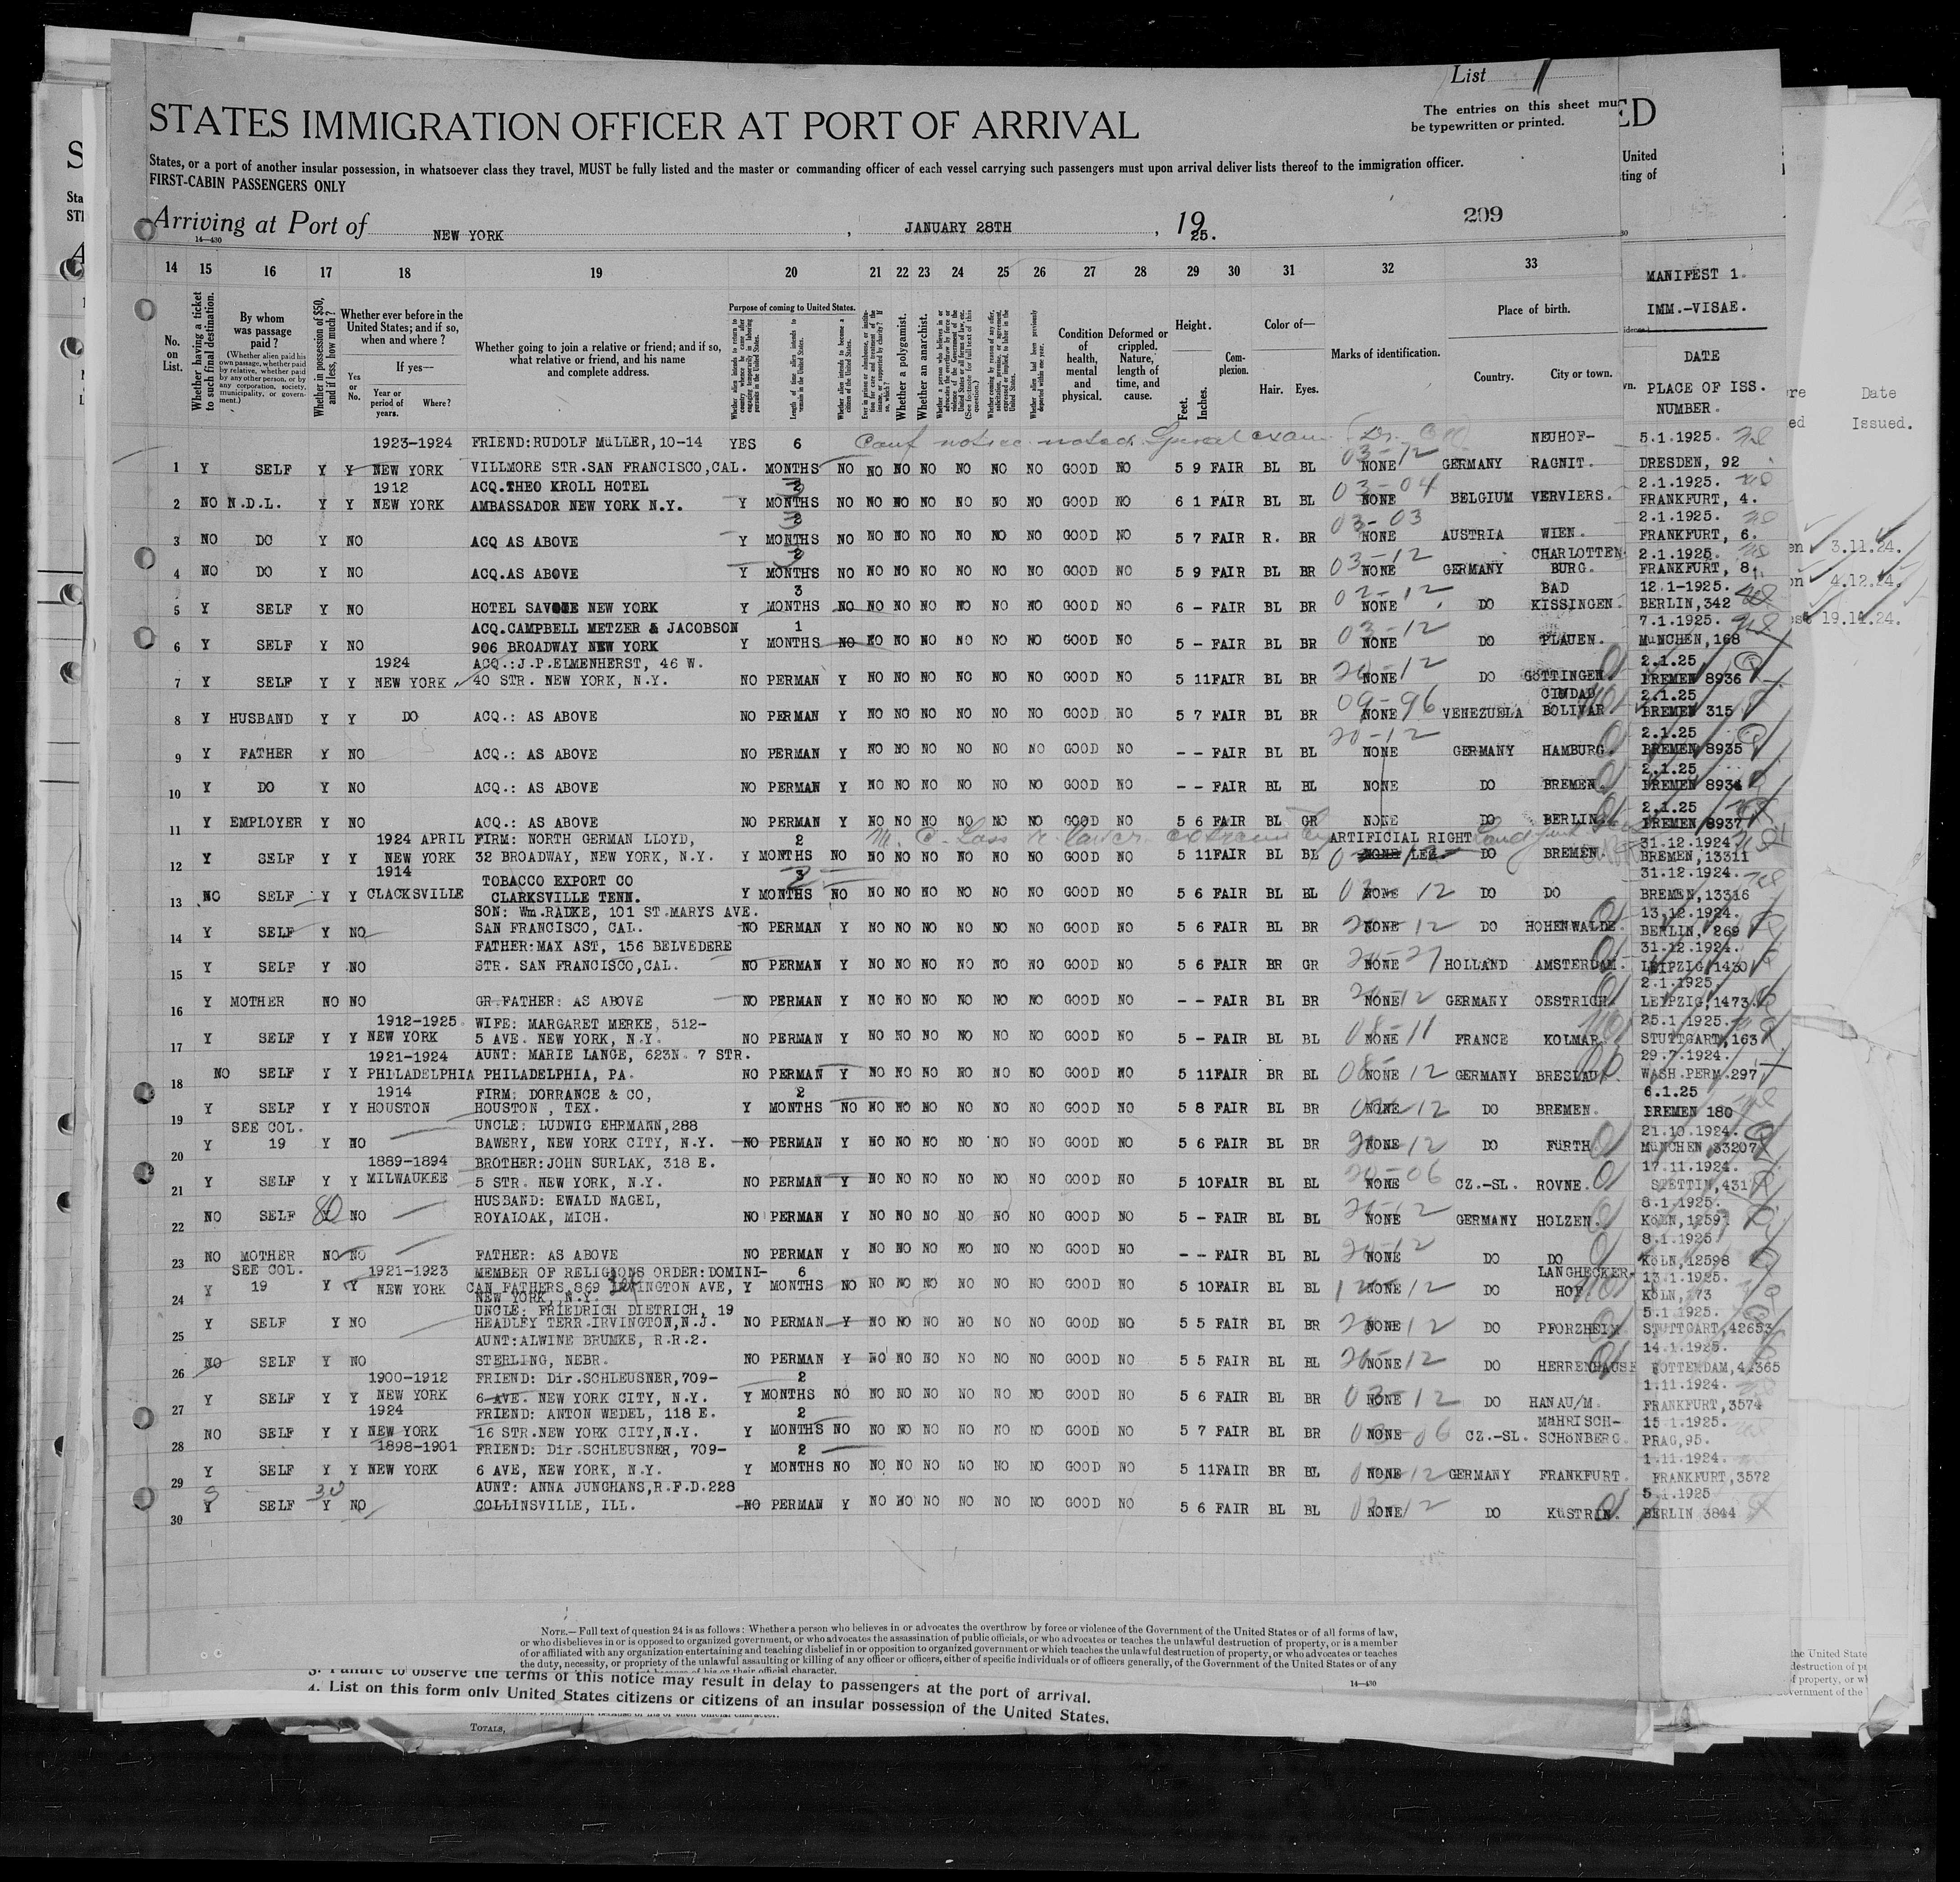 List 1
STATES IMMIGRATION OFFICER AT PORT OF ARRIVAL
The entries on this sheet mu
be typewritten or printed.
States, or a port of another insular possession, in whatsoever class they travel, MUST be fully listed and the master or commanding officer of each vessel carrying such passengers must upon arrival deliver lists thereof to the immigration officer.
FIRST-CABIN PASSENGERS ONLY
Arriving at Port of NEW YORK, JANUARY 28TH, 1925.
209
14—430
14 15 16 17 18 19 20 21 22 23 24 25 26 27 28 29 30 31 32 33
MANIFEST 1.
IMM.-VISAE.
DATE
PLACE OF ISS.
NUMBER.
No. on List.
Whether having a ticket to such final destination.
By whom was passage paid?
(Whether alien paid his own passage, whether paid by relative, whether paid by any other person, or by any corporation, society, municipality, or government.)
Whether in possession of $50, and if less, how much?
Whether ever before in the United States; and if so, when and where?
Yes or No.
If yes—
Year or period of years.
Where?
Whether going to join a relative or friend; and if so, what relative or friend, and his name and complete address.
Purpose of coming to United States.
Length of time alien intends to remain in the United States.
Whether alien intends to become a citizen of the United States.
Whether a polygamist.
Whether an anarchist.
Condition of health, mental and physical.
Deformed or crippled. Nature, length of time, and cause.
Height.
Feet. Inches.
Complexion.
Color of—
Hair. Eyes.
Marks of identification.
Place of birth.
Country. City or town.
1923-1924 FRIEND:RUDOLF MüLLER,10-14 YES 6 NEUHOF- 5.1.1925.
1 Y SELF Y Y NEW YORK VILLMORE STR.SAN FRANCISCO,CAL. MONTHS NO NO NO NO NO NO NO GOOD NO 5 9 FAIR BL BL 03-12 NONE GERMANY RAGNIT. DRESDEN, 92
1912 ACQ.THEO KROLL HOTEL 2.1.1925.
2 NO N.D.L. Y Y NEW YORK AMBASSADOR NEW YORK N.Y. Y MONTHS NO NO NO NO NO NO NO GOOD NO 6 1 FAIR BL BL 03-04 NONE BELGIUM VERVIERS. FRANKFURT, 4.
2.1.1925.
3 NO DO Y NO ACQ AS ABOVE Y MONTHS NO NO NO NO NO NO NO GOOD NO 5 7 FAIR R. BR 03-03 NONE AUSTRIA WIEN. FRANKFURT, 6.
CHARLOTTEN 2.1.1925.
4 NO DO Y NO ACQ.AS ABOVE Y MONTHS NO NO NO NO NO NO NO GOOD NO 5 9 FAIR BL BR 03-12 NONE GERMANY BURG. FRANKFURT, 8.
3 BAD 12.1-1925.
5 Y SELF Y NO HOTEL SAVOIE NEW YORK Y MONTHS NO NO NO NO NO NO NO GOOD NO 6 - FAIR BL BR 02-12 NONE DO KISSINGEN. BERLIN,342
ACQ.CAMPBELL METZER & JACOBSON 1 7.1.1925.
6 Y SELF Y NO 906 BROADWAY NEW YORK Y MONTHS NO NO NO NO NO NO NO GOOD NO 5 - FAIR BL BR 03-12 NONE DO PLAUEN. MüNCHEN,168
1924 ACQ.:J.P.ELMENHERST, 46 W. 2.1.25
7 Y SELF Y Y NEW YORK 40 STR. NEW YORK, N.Y. NO PERMAN Y NO NO NO NO NO NO GOOD NO 5 11 FAIR BL BR 20-12 NONE DO GöTTINGEN BREMEN 8936
CIUDAD 2.1.25
8 Y HUSBAND Y Y DO ACQ.: AS ABOVE NO PERMAN Y NO NO NO NO NO NO GOOD NO 5 7 FAIR BL BR 09-96 NONE VENEZUELA BOLIVAR BREMEN 315
2.1.25
9 Y FATHER Y NO ACQ.: AS ABOVE NO PERMAN Y NO NO NO NO NO NO GOOD NO - - FAIR BL BL 20-12 NONE GERMANY HAMBURG. BREMEN 8935
2.1.25
10 Y DO Y NO ACQ.: AS ABOVE NO PERMAN Y NO NO NO NO NO NO GOOD NO - - FAIR BL BL NONE DO BREMEN. BREMEN 8934
2.1.25
11 Y EMPLOYER Y NO ACQ.: AS ABOVE NO PERMAN Y NO NO NO NO NO NO GOOD NO 5 6 FAIR BL GR NONE DO BERLIN BREMEN 8937
1924 APRIL FIRM: NORTH GERMAN LLOYD, 2 ARTIFICIAL RIGHT 31.12.1924
12 Y SELF Y Y NEW YORK 32 BROADWAY, NEW YORK, N.Y. Y MONTHS NO NO NO NO NO NO NO GOOD NO 5 11 FAIR BL BL LEG. DO BREMEN. BREMEN,13311
1914 TOBACCO EXPORT CO 31.12.1924.
13 NO SELF Y Y CLACKSVILLE CLARKSVILLE TENN. Y MONTHS NO NO NO NO NO NO NO GOOD NO 5 6 FAIR BL BL NONE 12 DO DO BREMEN,13316
SON: Wm.RADKE, 101 ST.MARYS AVE. 13.12.1924.
14 Y SELF Y NO SAN FRANCISCO, CAL. NO PERMAN Y NO NO NO NO NO NO GOOD NO 5 6 FAIR BL BR NONE 12 DO HOHENWALDE. BERLIN, 269
FATHER:MAX AST, 156 BELVEDERE 31.12.1924.
15 Y SELF Y NO STR. SAN FRANCISCO,CAL. NO PERMAN Y NO NO NO NO NO NO GOOD NO 5 6 FAIR BR GR NONE 27 HOLLAND AMSTERDAM. LEIPZIG,1430
2.1.1925.
16 Y MOTHER NO NO GR.FATHER: AS ABOVE NO PERMAN Y NO NO NO NO NO NO GOOD NO - - FAIR BL BR NONE 12 GERMANY OESTRICH. LEIPZIG,1473.
1912-1925. WIFE: MARGARET MERKE, 512- 25.1.1925.
17 Y SELF Y Y NEW YORK 5 AVE. NEW YORK, N.Y. NO PERMAN Y NO NO NO NO NO NO GOOD NO 5 - FAIR BL BL 08-11 NONE FRANCE KOLMAR. STUTTGART,163
1921-1924 AUNT: MARIE LANGE, 623N. 7 STR. 29.7.1924.
18 NO SELF Y Y PHILADELPHIA PHILADELPHIA, PA. NO PERMAN Y NO NO NO NO NO NO GOOD NO 5 11 FAIR BR BL NONE 12 GERMANY BRESLAU. WASH.PERM.297
1914 FIRM: DORRANCE & CO, 2 6.1.25
19 Y SELF Y Y HOUSTON HOUSTON , TEX. Y MONTHS NO NO NO NO NO NO NO GOOD NO 5 8 FAIR BL BR NONE 12 DO BREMEN. BREMEN 180
SEE COL. UNCLE: LUDWIG EHRMANN,288 21.10.1924.
20 Y 19 Y NO BAWERY, NEW YORK CITY, N.Y. NO PERMAN Y NO NO NO NO NO NO GOOD NO 5 6 FAIR BL BR NONE 12 DO FüRTH MüNCHEN 33207
1889-1894 BROTHER:JOHN SURLAK, 318 E. 17.11.1924.
21 Y SELF Y Y MILWAUKEE 5 STR. NEW YORK, N.Y. NO PERMAN Y NO NO NO NO NO NO GOOD NO 5 10 FAIR BL BL 20-06 NONE CZ.-SL. ROVNE. STETTIN,431
HUSBAND: EWALD NAGEL, 8.1.1925.
22 NO SELF 80 NO ROYALOAK, MICH. NO PERMAN Y NO NO NO NO NO NO GOOD NO 5 - FAIR BL BL NONE GERMANY HOLZEN. KöLN,12597
8.1.1925
23 NO MOTHER NO NO FATHER: AS ABOVE NO PERMAN Y NO NO NO NO NO NO GOOD NO - - FAIR BL BL 20-12 NONE DO DO KöLN,12598
SEE COL. 1921-1923 MEMBER OF RELIGIONS ORDER:DOMINI- 6 LANGHECKER- 13.1.1925.
24 Y 19 Y Y NEW YORK CAN FATHERS,869 LEXINGTON AVE, Y MONTHS NO NO NO NO NO NO NO GOOD NO 5 10 FAIR BL BL NONE 12 DO HOF KöLN, 73
NEW YORK, N.Y.
UNCLE: FRIEDRICH DIETRICH, 19 5.1.1925.
25 Y SELF Y NO HEADLEY TERR.IRVINGTON,N.J. NO PERMAN Y NO NO NO NO NO NO GOOD NO 5 5 FAIR BL BR NONE 12 DO PFORZHEIM. STUTTGART,42653
AUNT:ALWINE BRUMKE, R.R.2. 14.1.1925.
26 NO SELF Y NO STERLING, NEBR. NO PERMAN Y NO NO NO NO NO NO GOOD NO 5 5 FAIR BL BL NONE 12 DO HERRENHAUSE ROTTERDAM,42365
1900-1912 FRIEND: Dir.SCHLEUSNER,709- 2 1.11.1924.
27 Y SELF Y Y NEW YORK 6 AVE. NEW YORK CITY, N.Y. Y MONTHS NO NO NO NO NO NO NO GOOD NO 5 6 FAIR BL BR 03-12 NONE DO HANAU/M. FRANKFURT,3574
1924 FRIEND: ANTON WEDEL, 118 E. 2 MäHRISCH- 15.1.1925.
28 NO SELF Y Y NEW YORK 16 STR.NEW YORK CITY,N.Y. Y MONTHS NO NO NO NO NO NO NO GOOD NO 5 7 FAIR BL BR NONE 06 CZ.-SL. SCHöNBERG. PRAG,95.
1898-1901 FRIEND: Dir.SCHLEUSNER, 709- 2 1.11.1924.
29 Y SELF Y Y NEW YORK 6 AVE, NEW YORK, N.Y. Y MONTHS NO NO NO NO NO NO NO GOOD NO 5 11 FAIR BR BL NONE 12 GERMANY FRANKFURT. FRANKFURT,3572
AUNT: ANNA JUNGHANS,R.F.D.228 5.1.1925
30 Y SELF 30 Y NO COLLINSVILLE, ILL. NO PERMAN Y NO NO NO NO NO NO GOOD NO 5 6 FAIR BL BL NONE 12 DO KüSTRIN. BERLIN 3844
Date
Issued.
3.11.24.
4.12.24.
19.11.24.
NOTE.—Full text of question 24 is as follows: Whether a person who believes in or advocates the overthrow by force or violence of the Government of the United States or of all forms of law,
or who disbelieves in or is opposed to organized government, or who advocates the assassination of public officials, or who advocates or teaches the unlawful destruction of property, or is a member
of or affiliated with any organization entertaining and teaching disbelief in or opposition to organized government or which teaches the unlawful destruction of property, or who advocates or teaches
the duty, necessity, or propriety of the unlawful assaulting or killing of any officer or officers, either of specific individuals or of officers generally, of the Government of the United States or of any
3. Failure to observe the terms of this notice may result in delay to passengers at the port of arrival.
4. List on this form only United States citizens or citizens of an insular possession of the United States.
14—430
TOTALS,